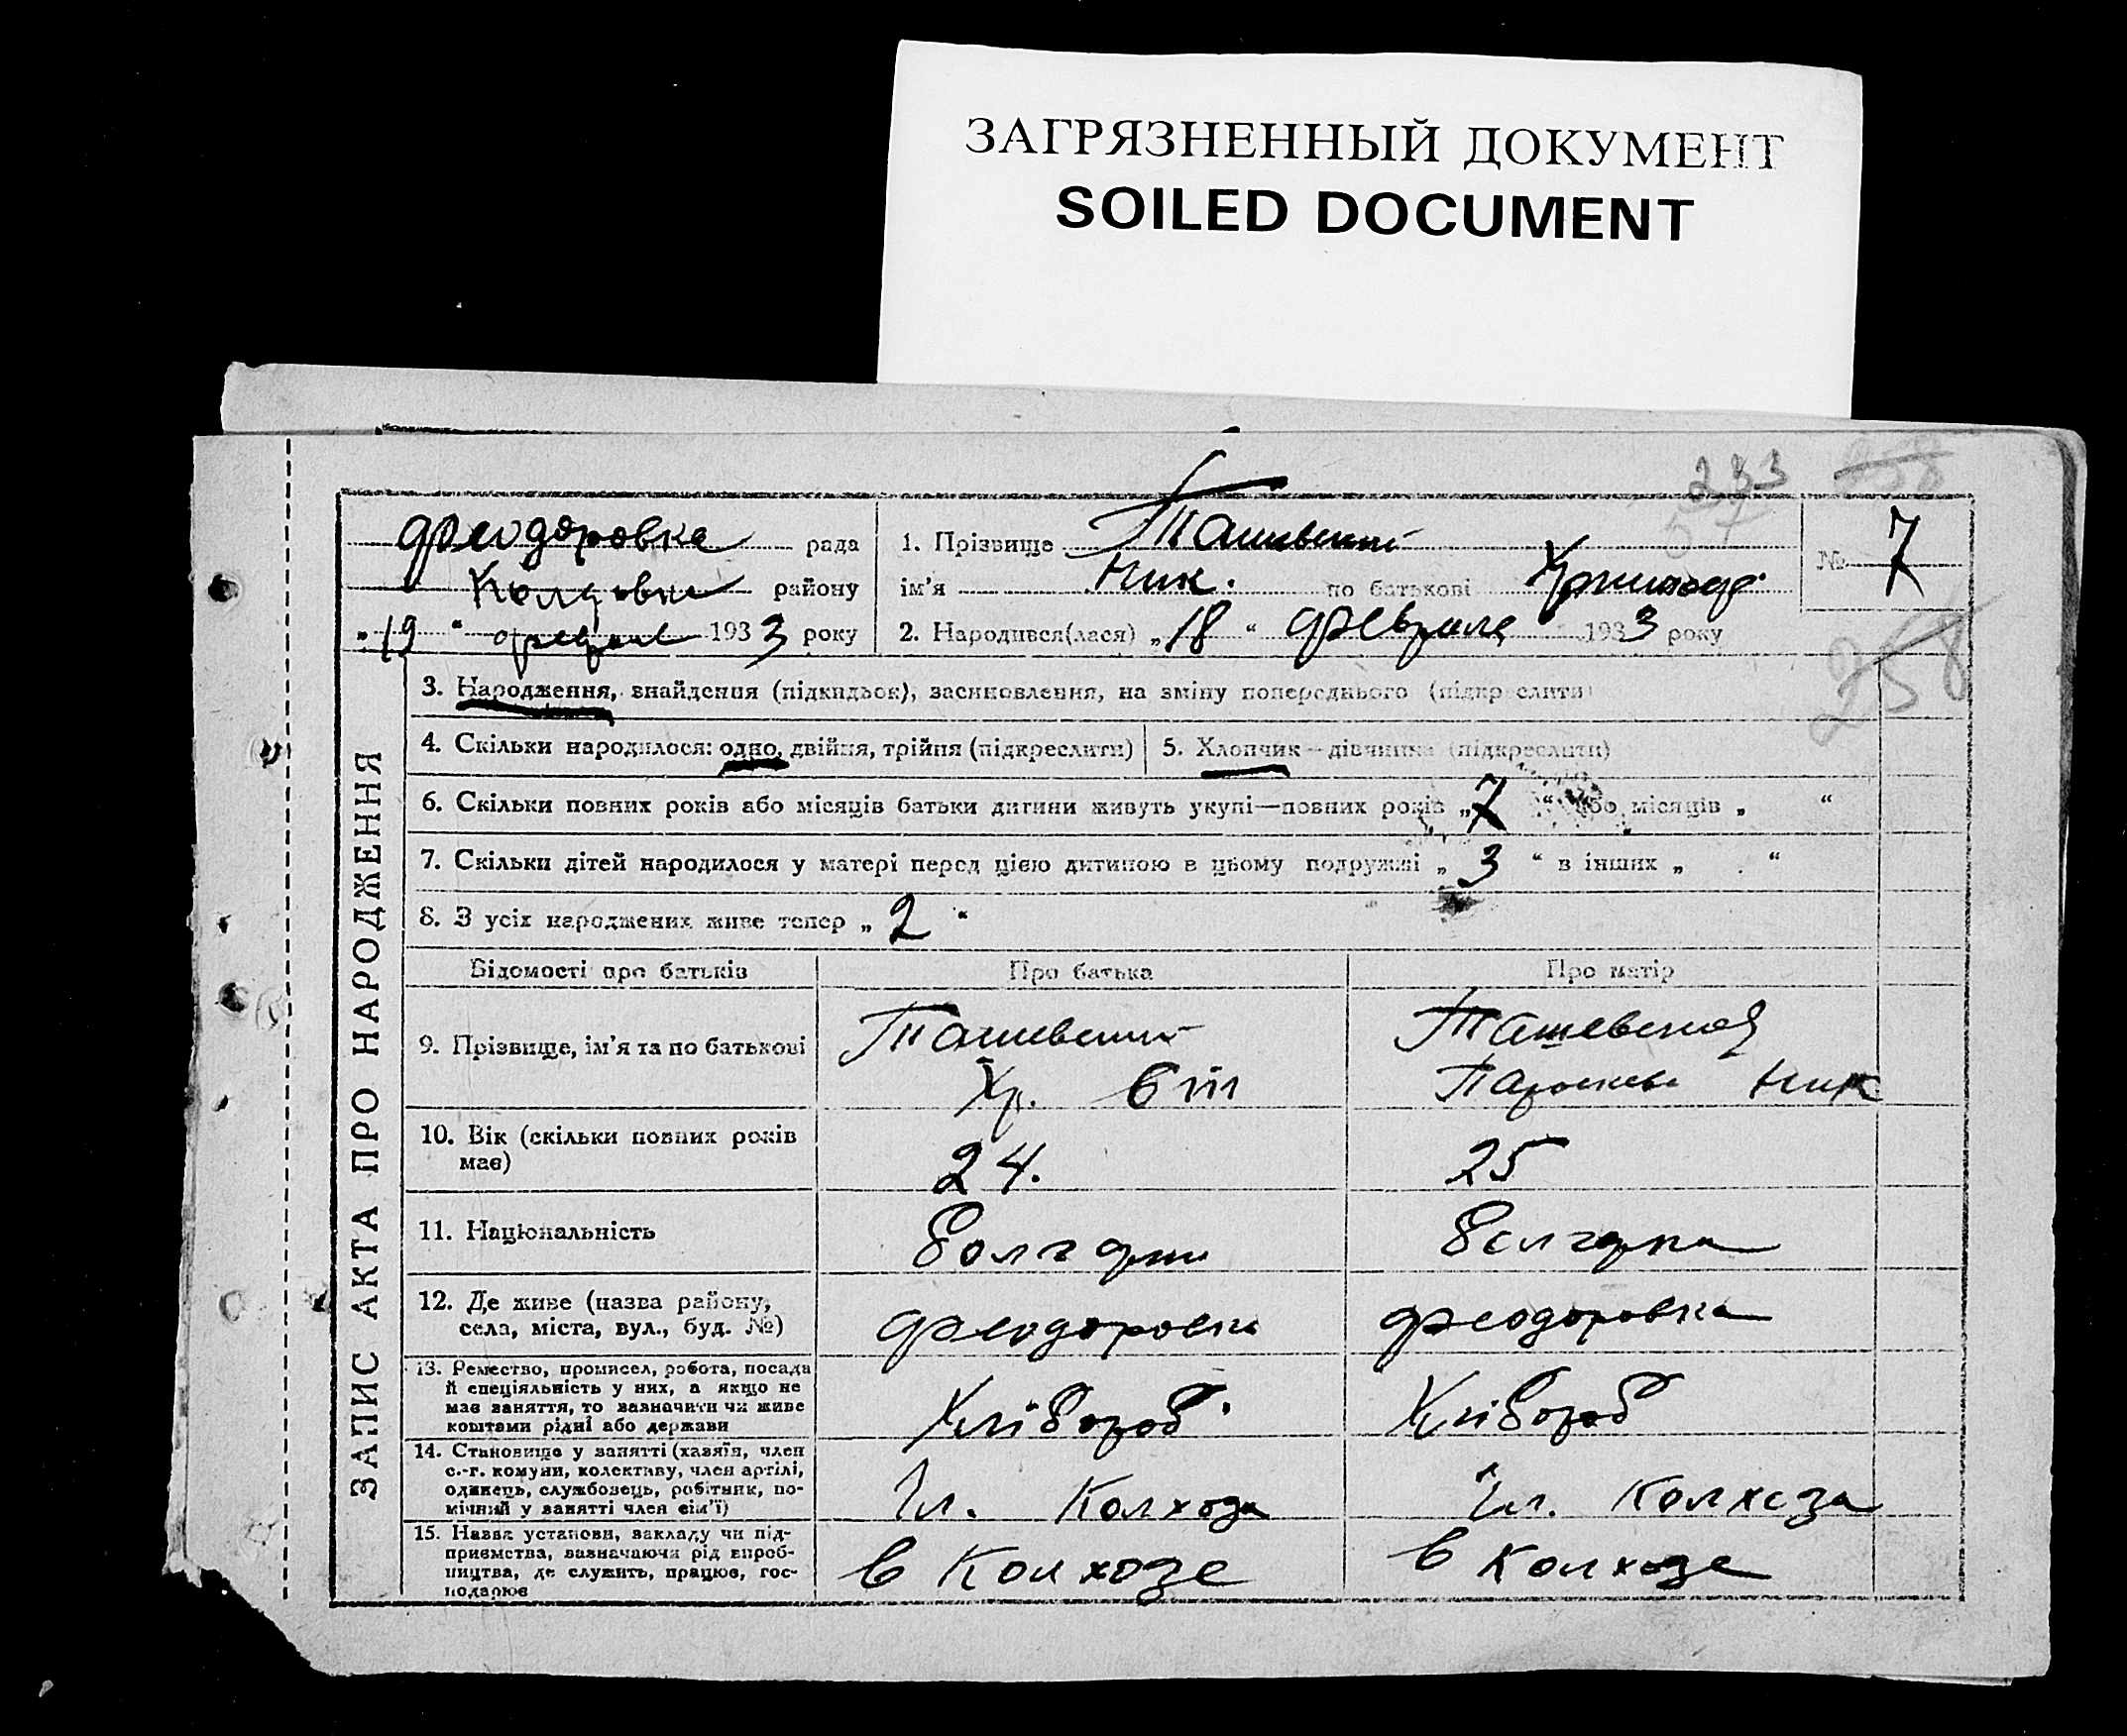 ЗАГРЯЗНЕННЫЙ ДОКУМЕНТ
SOILED DOCUMENT
233 258
57
Феодоровка рада
району
„19“ 1933 року
1. Прізвище Ташевский
ім'я Ник. по батькові
2. Народився(лася) „18“ Февраля 1933 року
№ 7
258
ЗАПИС АКТА ПРО НАРОДЖЕННЯ
3. Народження, знайдення (підкидьок), засиновлення, на зміну попереднього (підкреслити)
4. Скільки народилося: одно, двійня, трійня (підкреслити)
5. Хлопчик—дівчинка (підкреслити)
6. Скільки повних років або місяців батьки дитини живуть укупі—повних років „7“ або місяців „ “
7. Скільки дітей народилося у матері перед цією дитиною в цьому подружжі „3“ в інших „ “
8. З усіх народжених живе тепер „2“
Відомості про батьків Про батька Про матір
9. Прізвище, ім'я та по батькові
Ташевский Ташевская
Хр. Ник
10. Вік (скільки повних років
має)
24. 25
11. Національність
болгарин болгарка
12. Де живе (назва району,
села, міста, вул., буд. №)
Феодоровка Феодоровка
13. Ремество, промисел, робота, посада
й спеціяльність у них, а якщо не
має заняття, то зазначити чи живе
коштами рідні або держави
Хлібороб. Хлібороб
14. Становище у занятті (хазяїн, член
с.-г. комуни, колективу, член артілі,
одинець, службовець, робітник, по-
мічний у занятті член сім'ї)
Чл. Колхоза Чл. Колхоза
15. Назва установи, закладу чи під-
приємства, зазначаючи рід вироб-
ництва, де служить, працює, гос-
подарює
в Колхозе в Колхозе